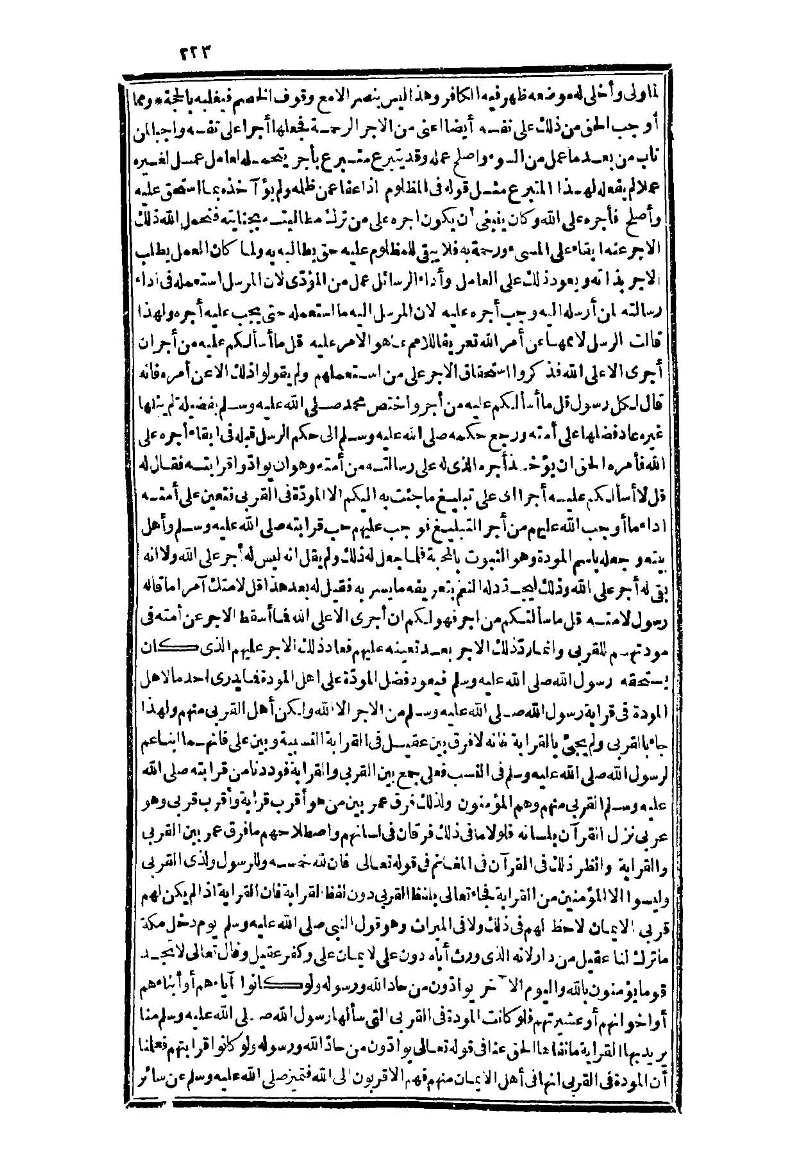 ٢٢٣
لما ولى وأخلى له موضعه ظهر فيه الكافر وهذا ليس بنصر الا مع وقوف الخصم فيغلبه بالحجة * ومما
أوجب الحق من ذلك على نفسه أيضا اعنى من الاجر الرحمة فجعلها أجرا على نفسه واجبا لمن
تاب من بعد ما عمل من السوء واصلح عمله وقد يتبرع متبرع بأجر يتحمله لعامل عمل لغيره
عملا لم يفعله لهذا المتبرع مثل قوله فى المظلوم اذا عفا عن ظلمه ولم يؤاخذه بما استحق عليه
وأصلح فأجره على الله وكان ينبغى أن يكون اجره على من ترك مطالبته بجنايته فتحمل الله ذلك
الاجر عنه ابقاء على المسىء ورحمة به فلا يبقى للمظلوم عليه حق يطالبه به ولما كان العمل يطلب
الاجر بذاته ويعود ذلك على العامل وأداء الرسائل عمل من المؤدّى لان المرسل استعمله فى أداء
رسالته لمن أرسله اليه وجب أجره عليه لان المرسل اليه ما استعمله حتى يجب عليه أجره ولهذا
قالت الرسل لاممها عن أمر الله تعريفا للامم بما هو الامر عليه قل ما أسألكم عليه من أجر ان
أجرى الا على الله فذكروا استحقاق الاجر على من استعملهم ولم يقولوا ذلك الا عن أمره فانه
قال لكل رسول قل ما أسألكم عليه من أجر واختص محمد صلى الله عليه وسلم بفضيلة لم ينلها
غيره عاد فضلها على أمته ورجع حكمه صلى الله عليه وسلم الى حكم الرسل قبله فى ابقاء أجره على
الله فأمره الحق ان يؤخذ أجره الذى له على رسالته من أمته وهو ان يوادّوا قرابته فقال له
قل لا أسألكم عليه أجرا اى على تبليغ ما جئت به اليكم الا المودّة فى القربى فتعين على أمته
اداء ما أوجب الله عليهم من أجر التبليغ فوجب عليهم حب قرابته صلى الله عليه وسلم وأهل
بيته وجعله باسم المودة وهو الثبوت بالمحبة فلما جعل له ذلك ولم يقل انه ليس له أجر على الله ولا انه
بقى له أجر على الله وذلك ليجدد له النعم بتعريفه ما يسر به فقيل له بعد هذا قل لامتك آمرا ما قاله
رسول لامته قل ما سألتكم من اجر فهو لكم ان أجرى الا على الله فما أسقط الاجر عن أمته فى
مودتهم للقربى وانما ردّ ذلك الاجر بعد تعينه عليهم فعاد ذلك الاجر عليهم الذى كان
يستحقه رسول الله صلى الله عليه وسلم فيعود فضل المودّة على اهل المودة فما يدرى احد ما لاهل
المودة فى قرابة رسول الله صلى الله عليه وسلم من الاجر الا الله ولكن أهل القربى منهم ولهذا
جاء بالقربى ولم يجئ بالقرابة فانه لا فرق بين عقيل فى القرابة النسبية وبين على فانهما ابنا عم
لرسول الله صلى الله عليه وسلم فى النسب فعلى جمع بين القربى والقرابة فوددنا من قرابته صلى الله
عليه وسلم القربى منهم وهم المؤمنون ولذلك فرق عمر بين من هو أقرب قرابة وأقرب قربى وهو
عربى نزل القرآن بلسانه فلولا ما فى ذلك فرقان فى لسانهم واصطلاحهم ما فرق عمر بين القربى
والقرابة وانظر ذلك فى القرآن فى المغانم فى قوله تعالى فان لله خمسه وللرسول ولذى القربى
وليسوا الا المؤمنين من القرابة فجاء تعالى بلفظ القربى دون لفظ القرابة فان القرابة اذا لم يكن لهم
قربى الايمان لاحظ لهم فى ذلك ولا فى الميراث وهو قول النبى صلى الله عليه وسلم يوم دخل مكة
ما ترك لنا عقيل من دار لانه الذى ورث أباه دون على لايمان على وكفر عقيل وقال تعالى لا تجد
قوما يؤمنون بالله واليوم الآخر يوادّون من حاد الله ورسوله ولو كانوا آباءهم أو أبناءهم
أو اخوانهم أو عشيرتهم فلو كانت المودة فى القربى التى سألها رسول الله صلى الله عليه وسلم منا
يريد بها القرابة ما نفاها الحق عنا فى قوله تعالى يوادّون من حادّ الله ورسوله ولو كانوا قرابتهم فعلمنا
أن المودة فى القربى انها فى أهل الايمان منهم فهم الاقربون الى الله فتميز صلى الله عليه وسلم عن سائر